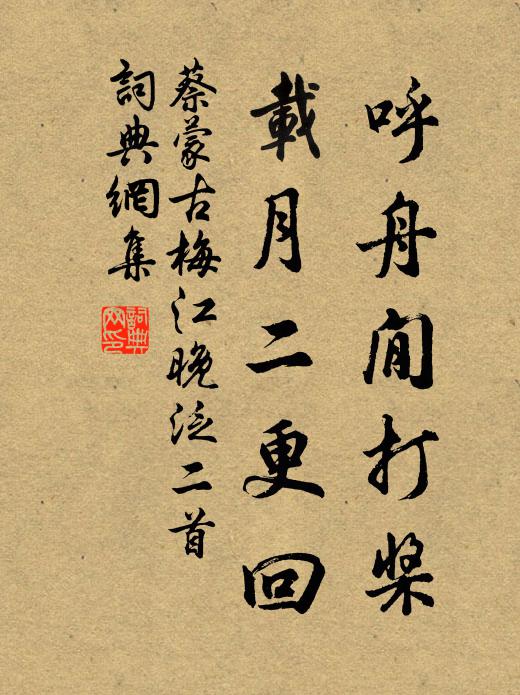 呼舟閒打槳
載月二更回
蔡蒙古梅江晚泛二首
詞典網集
詞典
网印